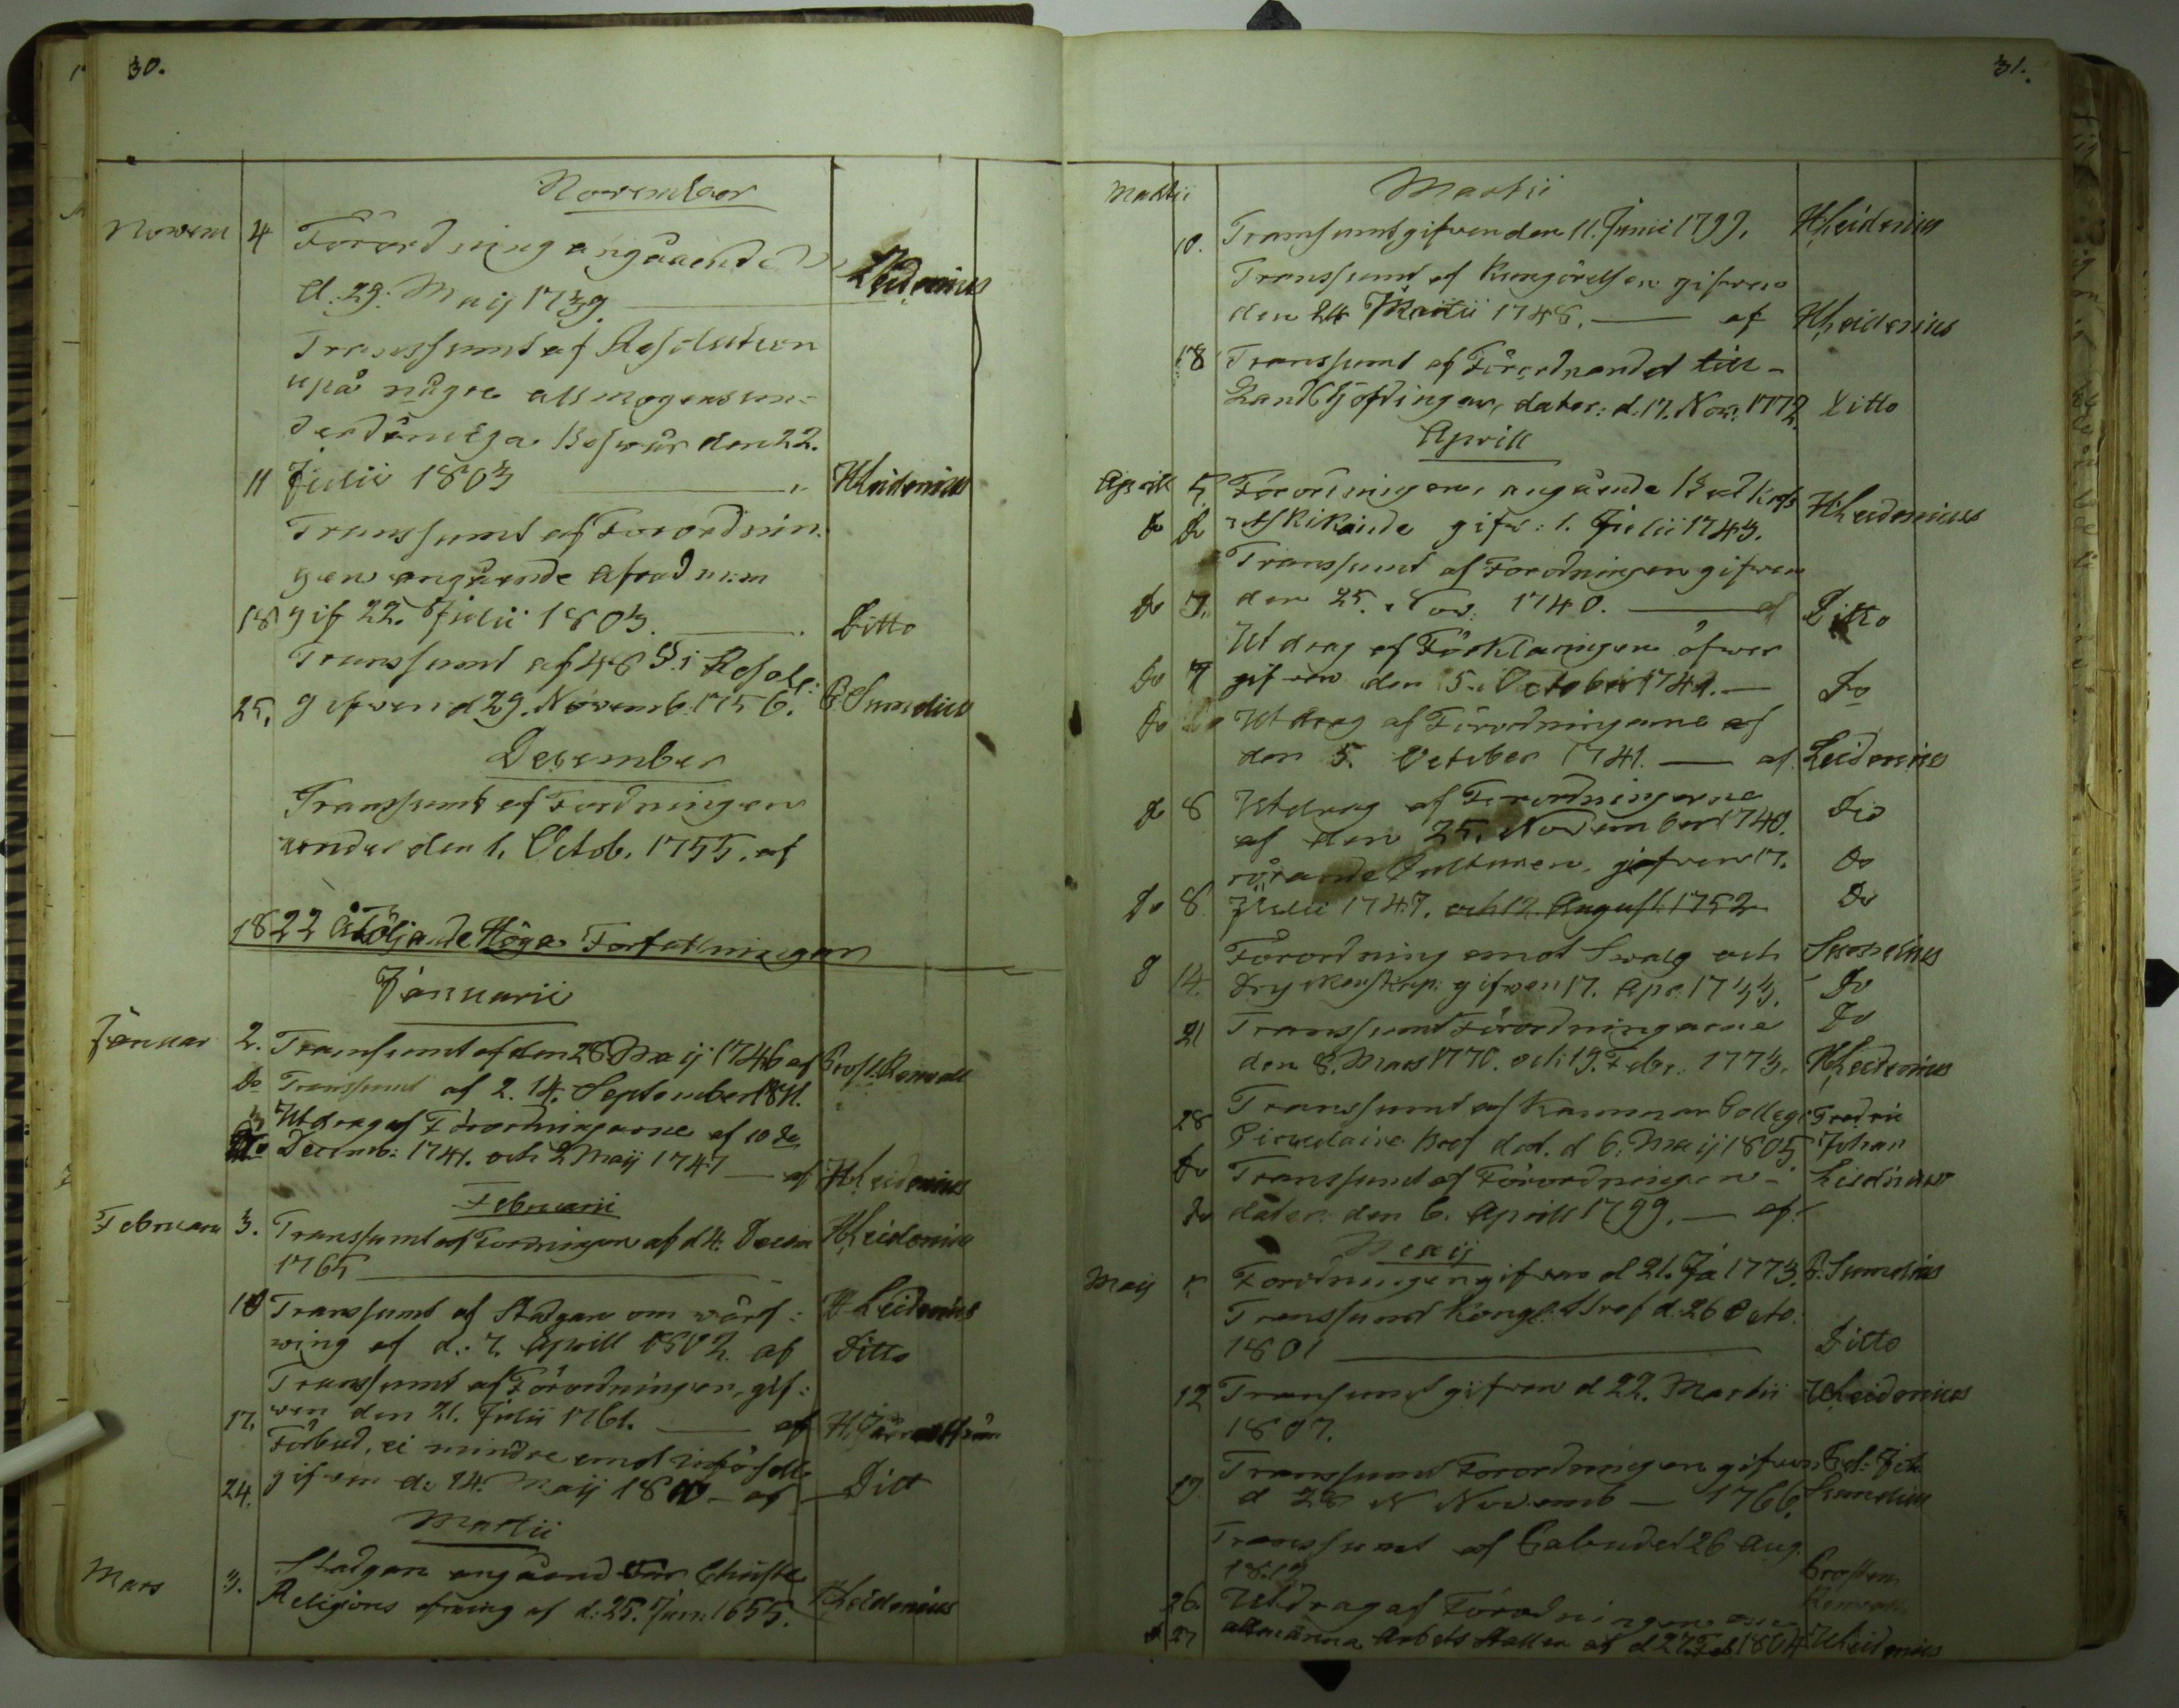 30.
November
Novem 4 Förordning angåaende
d. 29. Maij 1739. Leidenius
Transsumt af Resolution
upå någre allmogens un-
derdåniga Beswär den 22.
11 Julii 1803 HLeidenius
Transsumt af Forordnin-
gen angående
18 gif 22. Julii 1803. Ditto
Transsumt af 48 §. i Resol:
25. gifven d 29. Novemb. 1756. Sundius
December
Transsumt af Fordningen
den 1. Octob. 1755. af
1822 åföljande Höga Forfattningar
Januarii
Januar 2. Transsumt af den 28 Maij 1746 af Prost Renvall
Do Transsumt af 2. 14. September
3 Utdrag af Förordningarne af 10 de
Do Decemb: 1741. och 2 Maij 1747 — af HLeidenius
Februarii
Februari 3. Transsumt af Fordningen af d 4. Decem HLeidenius
1765
10 Transsumt af Stadgan om värf- H Leidenius
wing af d. 7. Aprill 1802. af Ditto
Transsumt af Förordningen, gif-
17. wen den 21. Julii 1761. — af H.
Förbud, ei mindre emot införsell
24. gifven d. 14. Maij 18 — af — Ditt
Martii
Mars 3. Stadgan angåend Christl
Religions öfning af d. 25. Jun: 1655. HLeidenius
31.
Martii Martii
10. Transsumt gifven den 11. Junii 1799. HLeidenius
Transsumt af Kungörelsen gifven
den 24 Martii 1748. — af HLeidenius
18 Transsumt af Förordnandet till-
Landshöfdingar, dater: d. 17. Nov: 1772. Ditto
Aprill
Aprill 5. Förordningen, angående HLeidenius
Do Do gifv: 1. Julii 1743.
Transsumt af Forordningen gifven
Do 7. den 25. Nov. 1740. — af Ditto
Utdrag af Förklaringen öfver
Do 7 gifven den 5. October 1741. — Do
Do Do Utdrag af Förordningarne af
den 5. October 1741. — af Leidenius
Do 8 Utdrag af Förordningarne Dio
af den 25. November 1740.
rörande gifven 17. Do
Do 8. Julii 1747. och 12. August. 1752 Do
Förordning emot Swalg och Sundius
D 14. Dryckenskap: gifven 17. Apr. 1733. Do
21 Transsumt Förordningarne Do
den 8. Mars 1770. och 19. Febr. 1773. HLeidenius
Transsumt af Kammar Collegi Fredric
28 Circulaire Bref dat. d 6. Maij 1805 Johan
Do Transsumt af Förordningen - Leidenius
Do dater. den 6. Aprill 1799. — af
Maij
Maij 5 Forordningen gifven d 21. Ja 1773. Sundius
Transsumt Kongl. Bref d. 26 Octo.
1801 Ditto
12 Transsumt gifven d 22. Martii HLeidenius
1807.
Transsumt Forordningen gifven
19. d 28 Novemb — 1766. Sundius
Transsumt af 26 Aug.
1812 Prosten
26. Utdrag af Förordningen om Renvall
27 allmänna Arbets Hallen af d 27. Feb 1804 HLeidenius